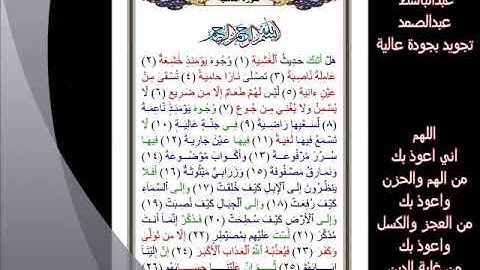 عبدالباسط
عبدالصمد
تجويد بجودة عالية
بسم الله الرحمن الرحيم
هَلْ أَتَىٰكَ حَدِيثُ ٱلْغَٰشِيَةِ (١) وُجُوهٌ يَوْمَئِذٍ خَٰشِعَةٌ (٢)
عَامِلَةٌ نَّاصِبَةٌ (٣) تَصْلَىٰ نَارًا حَامِيَةً (٤) تُسْقَىٰ مِنْ
عَيْنٍ ءَانِيَةٍ (٥) لَّيْسَ لَهُمْ طَعَامٌ إِلَّا مِن ضَرِيعٍ (٦) لَّا
يُسْمِنُ وَلَا يُغْنِى مِن جُوعٍ (٧) وُجُوهٌ يَوْمَئِذٍ نَّاعِمَةٌ
(٨) لِّسَعْيِهَا رَاضِيَةٌ (٩) فِى جَنَّةٍ عَالِيَةٍ (١٠) لَّا
تَسْمَعُ فِيهَا لَٰغِيَةً (١١) فِيهَا عَيْنٌ جَارِيَةٌ (١٢) فِيهَا
سُرُرٌ مَّرْفُوعَةٌ (١٣) وَأَكْوَابٌ مَّوْضُوعَةٌ (١٤)
وَنَمَارِقُ مَصْفُوفَةٌ (١٥) وَزَرَابِىُّ مَبْثُوثَةٌ (١٦) أَفَلَا
يَنظُرُونَ إِلَى ٱلْإِبِلِ كَيْفَ خُلِقَتْ (١٧) وَإِلَى ٱلسَّمَآءِ
كَيْفَ رُفِعَتْ (١٨) وَإِلَى ٱلْجِبَالِ كَيْفَ نُصِبَتْ (١٩)
وَإِلَى ٱلْأَرْضِ كَيْفَ سُطِحَتْ (٢٠) فَذَكِّرْ إِنَّمَآ أَنتَ
مُذَكِّرٌ (٢١) لَّسْتَ عَلَيْهِم بِمُصَيْطِرٍ (٢٢) إِلَّا مَن تَوَلَّىٰ
وَكَفَرَ (٢٣) فَيُعَذِّبُهُ ٱللَّهُ ٱلْعَذَابَ ٱلْأَكْبَرَ (٢٤) إِنَّ إِلَيْنَآ
إِيَابَهُمْ (٢٥) ثُمَّ إِنَّ عَلَيْنَا حِسَابَهُم (٢٦)
اللهم
اني اعوذ بك
من الهم والحزن
واعوذ بك
من العجز والكسل
واعوذ بك
من غلبة الدين